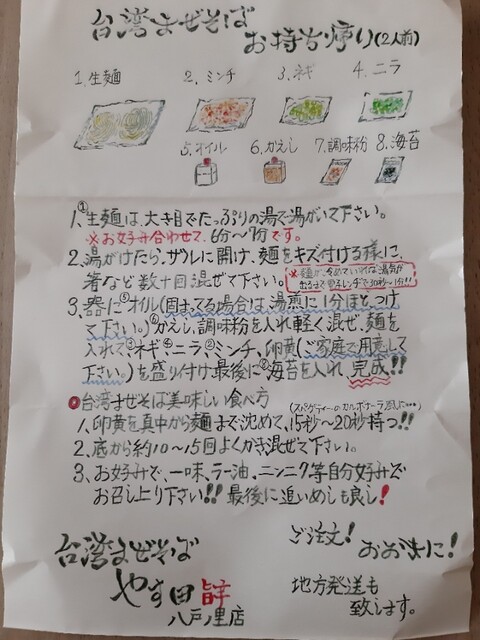 台湾まぜそば
お持ち帰り(2人前)
1.生麺 2.ミンチ 3.ネギ 4.ニラ
5.オイル 6.かえし 7.調味粉 8.海苔
1、①生麺は、大き目でたっぷりの湯で湯がいて下さい。
※お好み合わせて、6分〜7分です。
2、湯がけたら、ザルに開け、麺をキズ付ける様に、
箸など数十回混ぜて下さい。
3、器に⑤オイル(固まってる場合は湯煎に1分ほどつけ
て下さい。)⑥かえし、調味粉を入れ軽く混ぜ、麺を
入れて③ネギ④ニラ、②ミンチ、卵黄(ご家庭で用意して
下さい。)を盛り付け最後に⑧海苔を入れ、完成!!
台湾まぜそば美味しい食べ方
1、卵黄を真中から麺まで沈めて、15秒〜20秒待つ!!
2、底から約10〜15回よくかき混ぜて下さい。
3、お好みで、一味、ラー油、ニンニク等自分好みで
お召し上り下さい!! 最後に追いめしも良し!
台湾まぜそば
やす田
八戸ノ里店
ご注文!
おおきに!
地方発送も
致します。